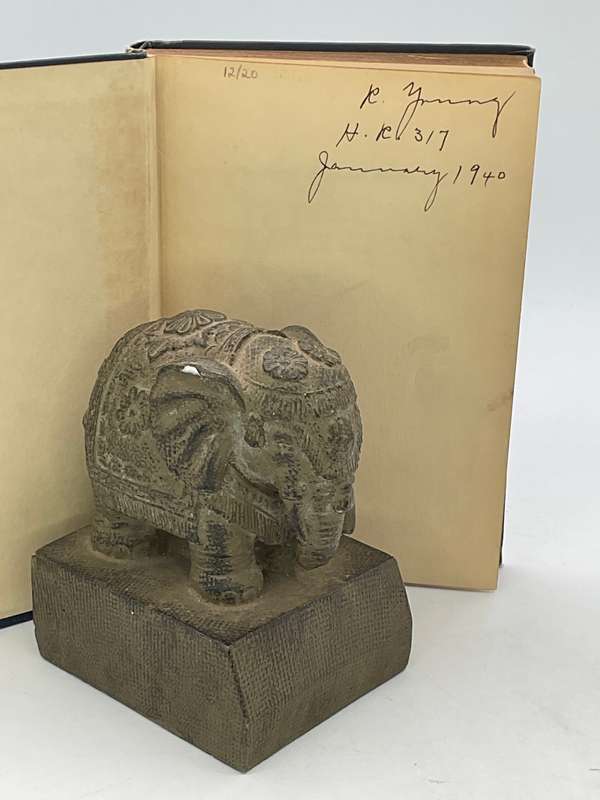 12/20
K. Young
H. K. 317
January 1940